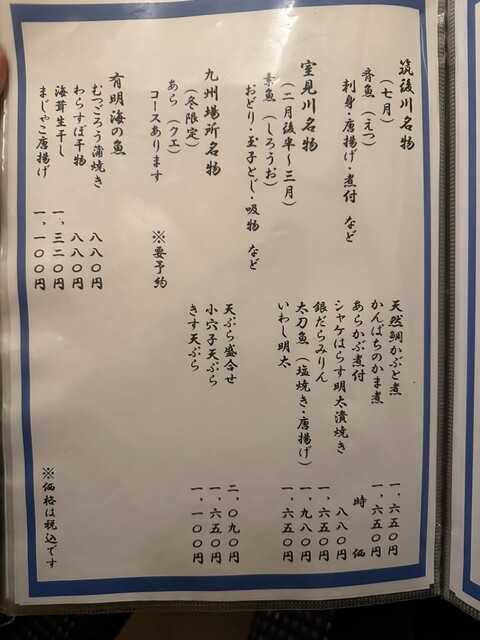 筑後川名物
（七月）
斉魚（えつ）
刺身・唐揚げ・煮付 など
室見川名物
（二月後半～三月）
素魚（しろうお）
おどり・玉子とじ・吸物 など
九州場所名物
（冬限定）
あら（クエ）
コースあります ※要予約
有明海の魚
むつごろう蒲焼き 八八〇円
わらすぼ干物 八八〇円
海茸生干し 一、三二〇円
まじゃこ唐揚げ 一、一〇〇円
天然鯛かぶと煮 一、六五〇円
かんぱちのかま煮 一、六五〇円
あらかぶ煮付 時価
シャケはらす明太漬焼き 八八〇円
銀だらみりん 一、六五〇円
太刀魚（塩焼き・唐揚げ） 一、九八〇円
いわし明太 一、六五〇円
天ぷら盛合せ 二、〇九〇円
小穴子天ぷら 一、六五〇円
きす天ぷら 一、一〇〇円
※価格は税込です